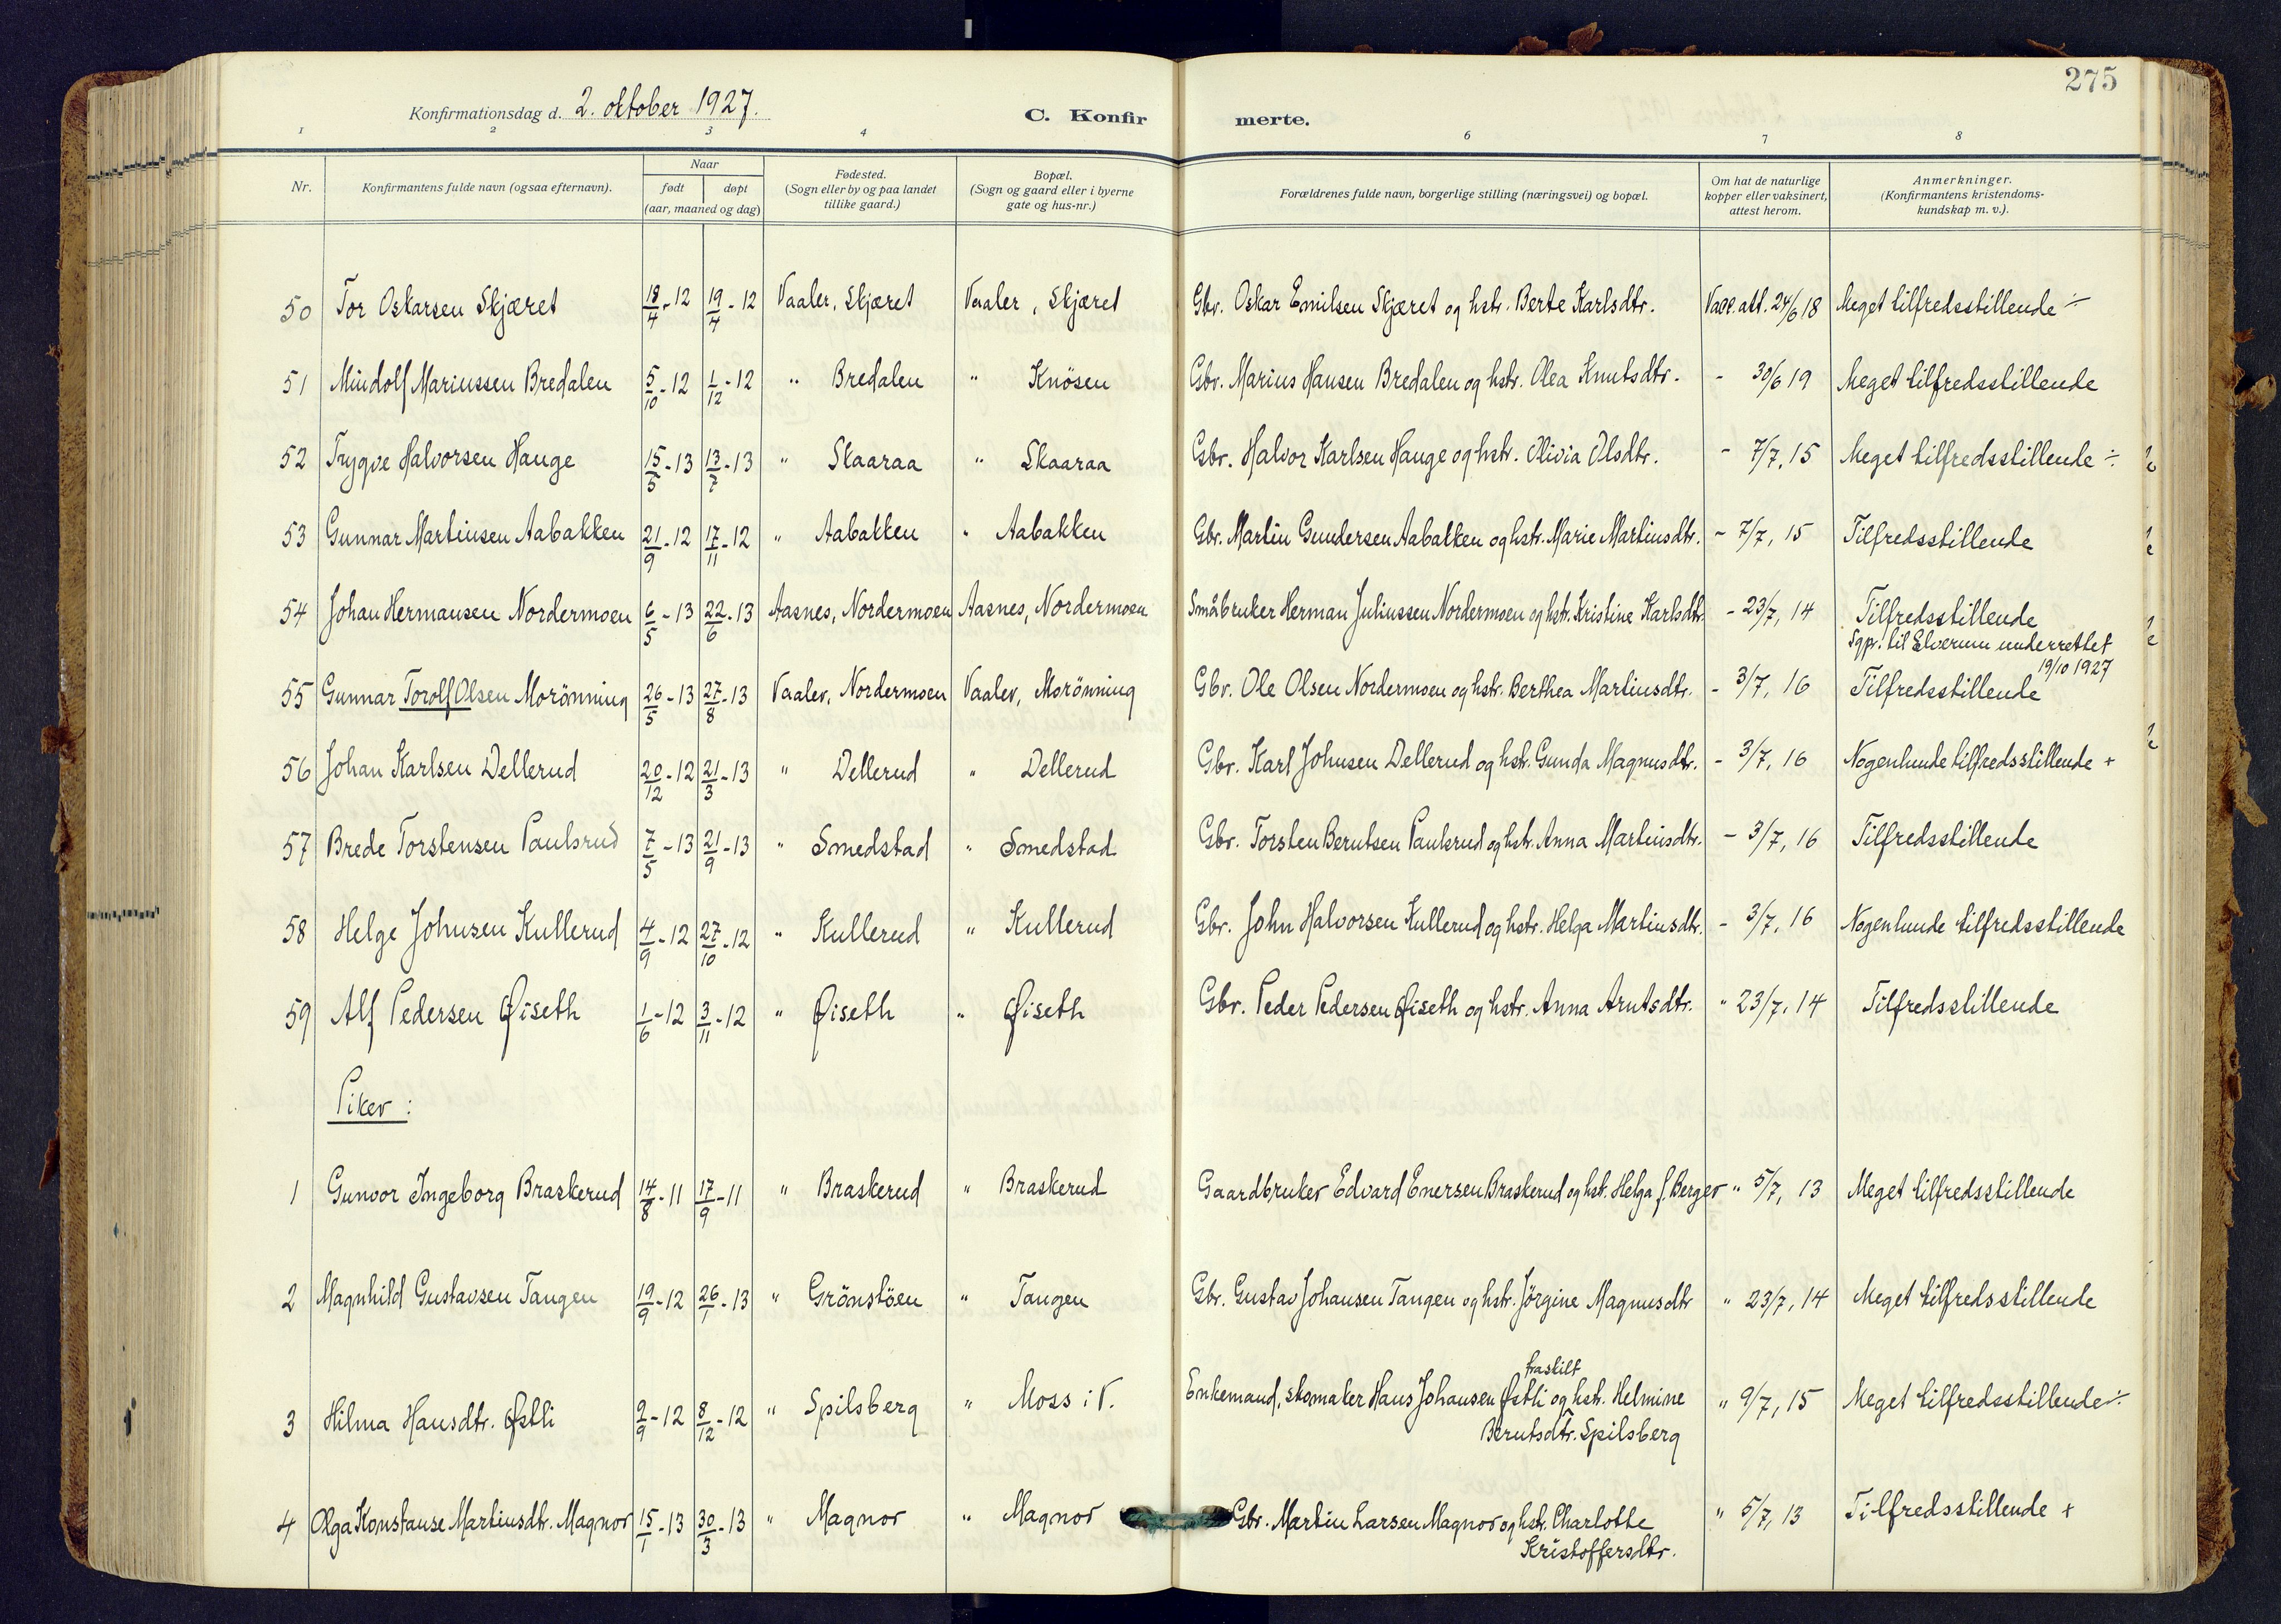 275
Konfirmationsdag d. 2. oktober 1927. C. Konfirmerte.
1 2 3 4 6 7 8
Nr. Konfirmantens fulde navn (ogsaa efternavn). Naar født døpt (aar, maaned og dag) Fødested. (Sogn eller by og paa landet tillike gaard.) Bopæl. (Sogn og gaard eller i byerne gate og hus-nr.) Forældrenes fulde navn, borgerlige stilling (næringsvei) og bopæl. Om hat de naturlige kopper eller vaksinert, attest herom. Anmerkninger. (Konfirmantens kristendomskundskap m. v.).
50 Tor Oskarsen Skjæret 18/4-12 19/4-12 Vaaler, Skjæret Vaaler, Skjæret Gbr. Oskar Emilsen Skjæret og hstr. Berte Karlsdtr. Vacc. att. 24/6 18 Meget tilfredsstillende ÷
51 Mindolf Mariussen Bredalen 5/10-12 1/12-12 " Bredalen " Knösen Gbr. Marius Hansen Bredalen og hstr. Olea Knutsdtr. - 30/6 19 Meget tilfredsstillende
52 Trygve Halvorsen Hauge 15/5-13 13/7-13 " Skaaraa " Skaaraa Gbr. Halvor Karlsen Hauge og hstr. Olivia Olsdtr. - 7/7, 15 Meget tilfredsstillende ÷
53 Gunnar Martinsen Aabakken 21/9-12 17/11-12 " Aabakken " Aabakken Gbr. Martin Gundersen Aabakken og hstr. Marie Martinsdtr. - 7/7, 15 Tilfredsstillende
54 Johan Hermansen Nordermoen 6/5-13 22/6-13 Aasnes, Nordermoen Aasnes, Nordermoen Småbruker Herman Juliussen Nordermoen og hstr. Kristine Karlsdtr. - 23/7, 14 Tilfredsstillende
Sgpr. til Elverum underrettet
19/10 1927
55 Gunnar Torolf Olsen Morönning 26/5-13 27/8-13 Vaaler, Nordermoen Vaaler, Morönning Gbr. Ole Olsen Nordermoen og hstr. Berthea Martinsdtr. - 3/7, 16 Tilfredsstillende
56 Johan Karlsen Dellerud 20/12-12 21/3-13 " Dellerud " Dellerud Gbr. Karl Johnsen Dellerud og hstr. Gunda Magnusdtr. - 3/7, 16 Nogenlunde tilfredsstillende +
57 Brede Torstensen Paulsrud 7/5-13 21/9-13 " Smedstad " Smedstad Gbr. Torsten Berntsen Paulsrud og hstr. Anna Martinsdtr. - 3/7, 16 Tilfredsstillende
58 Helge Johnsen Kullerud 4/9-12 27/10-12 " Kullerud " Kullerud Gbr. John Halvorsen Kullerud og hstr. Helga Martinsdtr. - 3/7, 16 Nogenlunde tilfredsstillende
59 Alf Pedersen Øiseth 1/6-12 3/11-12 " Øiseth " Øiseth Gbr. Peder Pedersen Øiseth og hstr. Anna Arntsdtr. " 23/7, 14 Tilfredsstillende
Piker:
1 Gunvor Ingeborg Braskerud 14/8-11 17/9-11 " Braskerud " Braskerud Gaardbruker Edvard Enersen Braskerud og hst. Helga f. Berger " 5/7, 13 Meget tilfredsstillende
2 Magnhild Gustavsen Tangen 19/9-12 26/1-13 " Grönstöen " Tangen Gbr. Gustav Johansen Tangen og hstr. Jörgine Magnusdtr " 23/7, 14 Meget tilfredsstillende
fraskilt
3 Hilma Hansdtr. Østli 9/9-12 8/12-12 " Spilsberg " Moss i V. Enkemand, skomaker Hans Johansen Østli og hstr. Helmine " 9/7, 15 Meget tilfredsstillende ÷
Berntsdtr. Spilsberg
4 Olga Konstanse Martinsdtr. Magnor 15/1-13 30/3-13 " Magnor " Magnor Gbr. Martin Larsen Magnor og hstr. Charlotte " 5/7, 13 Tilfredsstillende +
Kristoffersdtr.